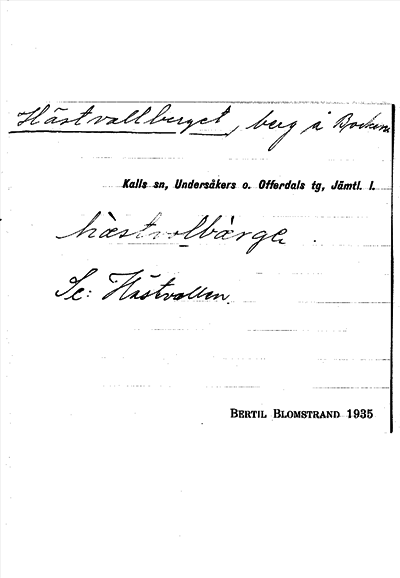 Hästvallberget, berg å
Kalls sn, Undersåkers o. Offerdals tg, Jämtl. l.
Se: Hästvallen
BERTIL BLOMSTRAND 1935